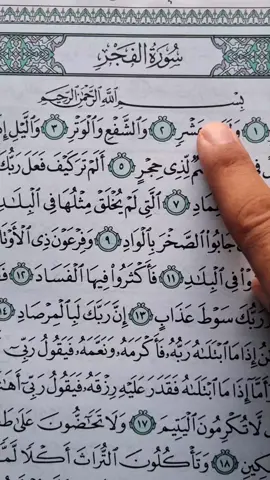 سُورَةُ الفَجْرِ
بِسْمِ ٱللَّهِ ٱلرَّحْمَٰنِ ٱلرَّحِيمِ
١ عَشْرٍ ٢ وَٱلشَّفْعِ وَٱلْوَتْرِ ٣ وَٱلَّيْلِ
لِّذِى حِجْرٍ ٥ أَلَمْ تَرَ كَيْفَ فَعَلَ رَبُّكَ
٧ ٱلَّتِى لَمْ يُخْلَقْ مِثْلُهَا فِى
جَابُوا۟ ٱلصَّخْرَ بِٱلْوَادِ ٩ وَفِرْعَوْنَ ذِى
فِى ٱلْبِلَٰدِ ١١ فَأَكْثَرُوا۟ فِيهَا ٱلْفَسَادَ ١٢
رَبُّكَ سَوْطَ عَذَابٍ ١٣ إِنَّ رَبَّكَ لَبِٱلْمِرْصَادِ ١٤
إِذَا مَا ٱبْتَلَىٰهُ رَبُّهُۥ فَأَكْرَمَهُۥ وَنَعَّمَهُۥ فَيَقُولُ رَبِّىٓ
إِذَا مَا ٱبْتَلَىٰهُ فَقَدَرَ عَلَيْهِ رِزْقَهُۥ فَيَقُولُ رَبِّىٓ
لَّا تُكْرِمُونَ ٱلْيَتِيمَ ١٧ وَلَا تَحَٰٓضُّونَ عَلَىٰ
١٨ وَتَأْكُلُونَ ٱلتُّرَاثَ أَكْلًا